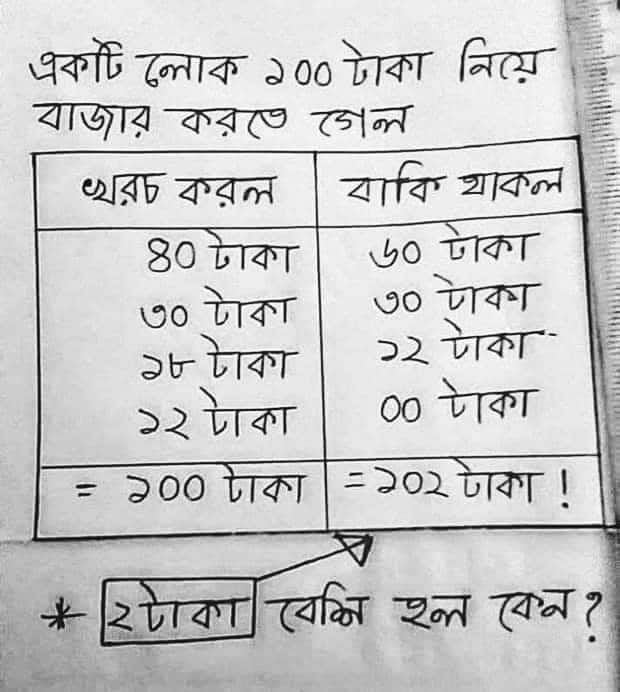 একটি লোক ১০০ টাকা নিয়ে
বাজার করতে গেল
খরচ করল বাকি থাকল
৪০ টাকা ৬০ টাকা
৩০ টাকা ৩০ টাকা
১৮ টাকা ১২ টাকা
১২ টাকা ০০ টাকা
= ১০০ টাকা = ১০২ টাকা !
* ২ টাকা বেশি হল কেন ?